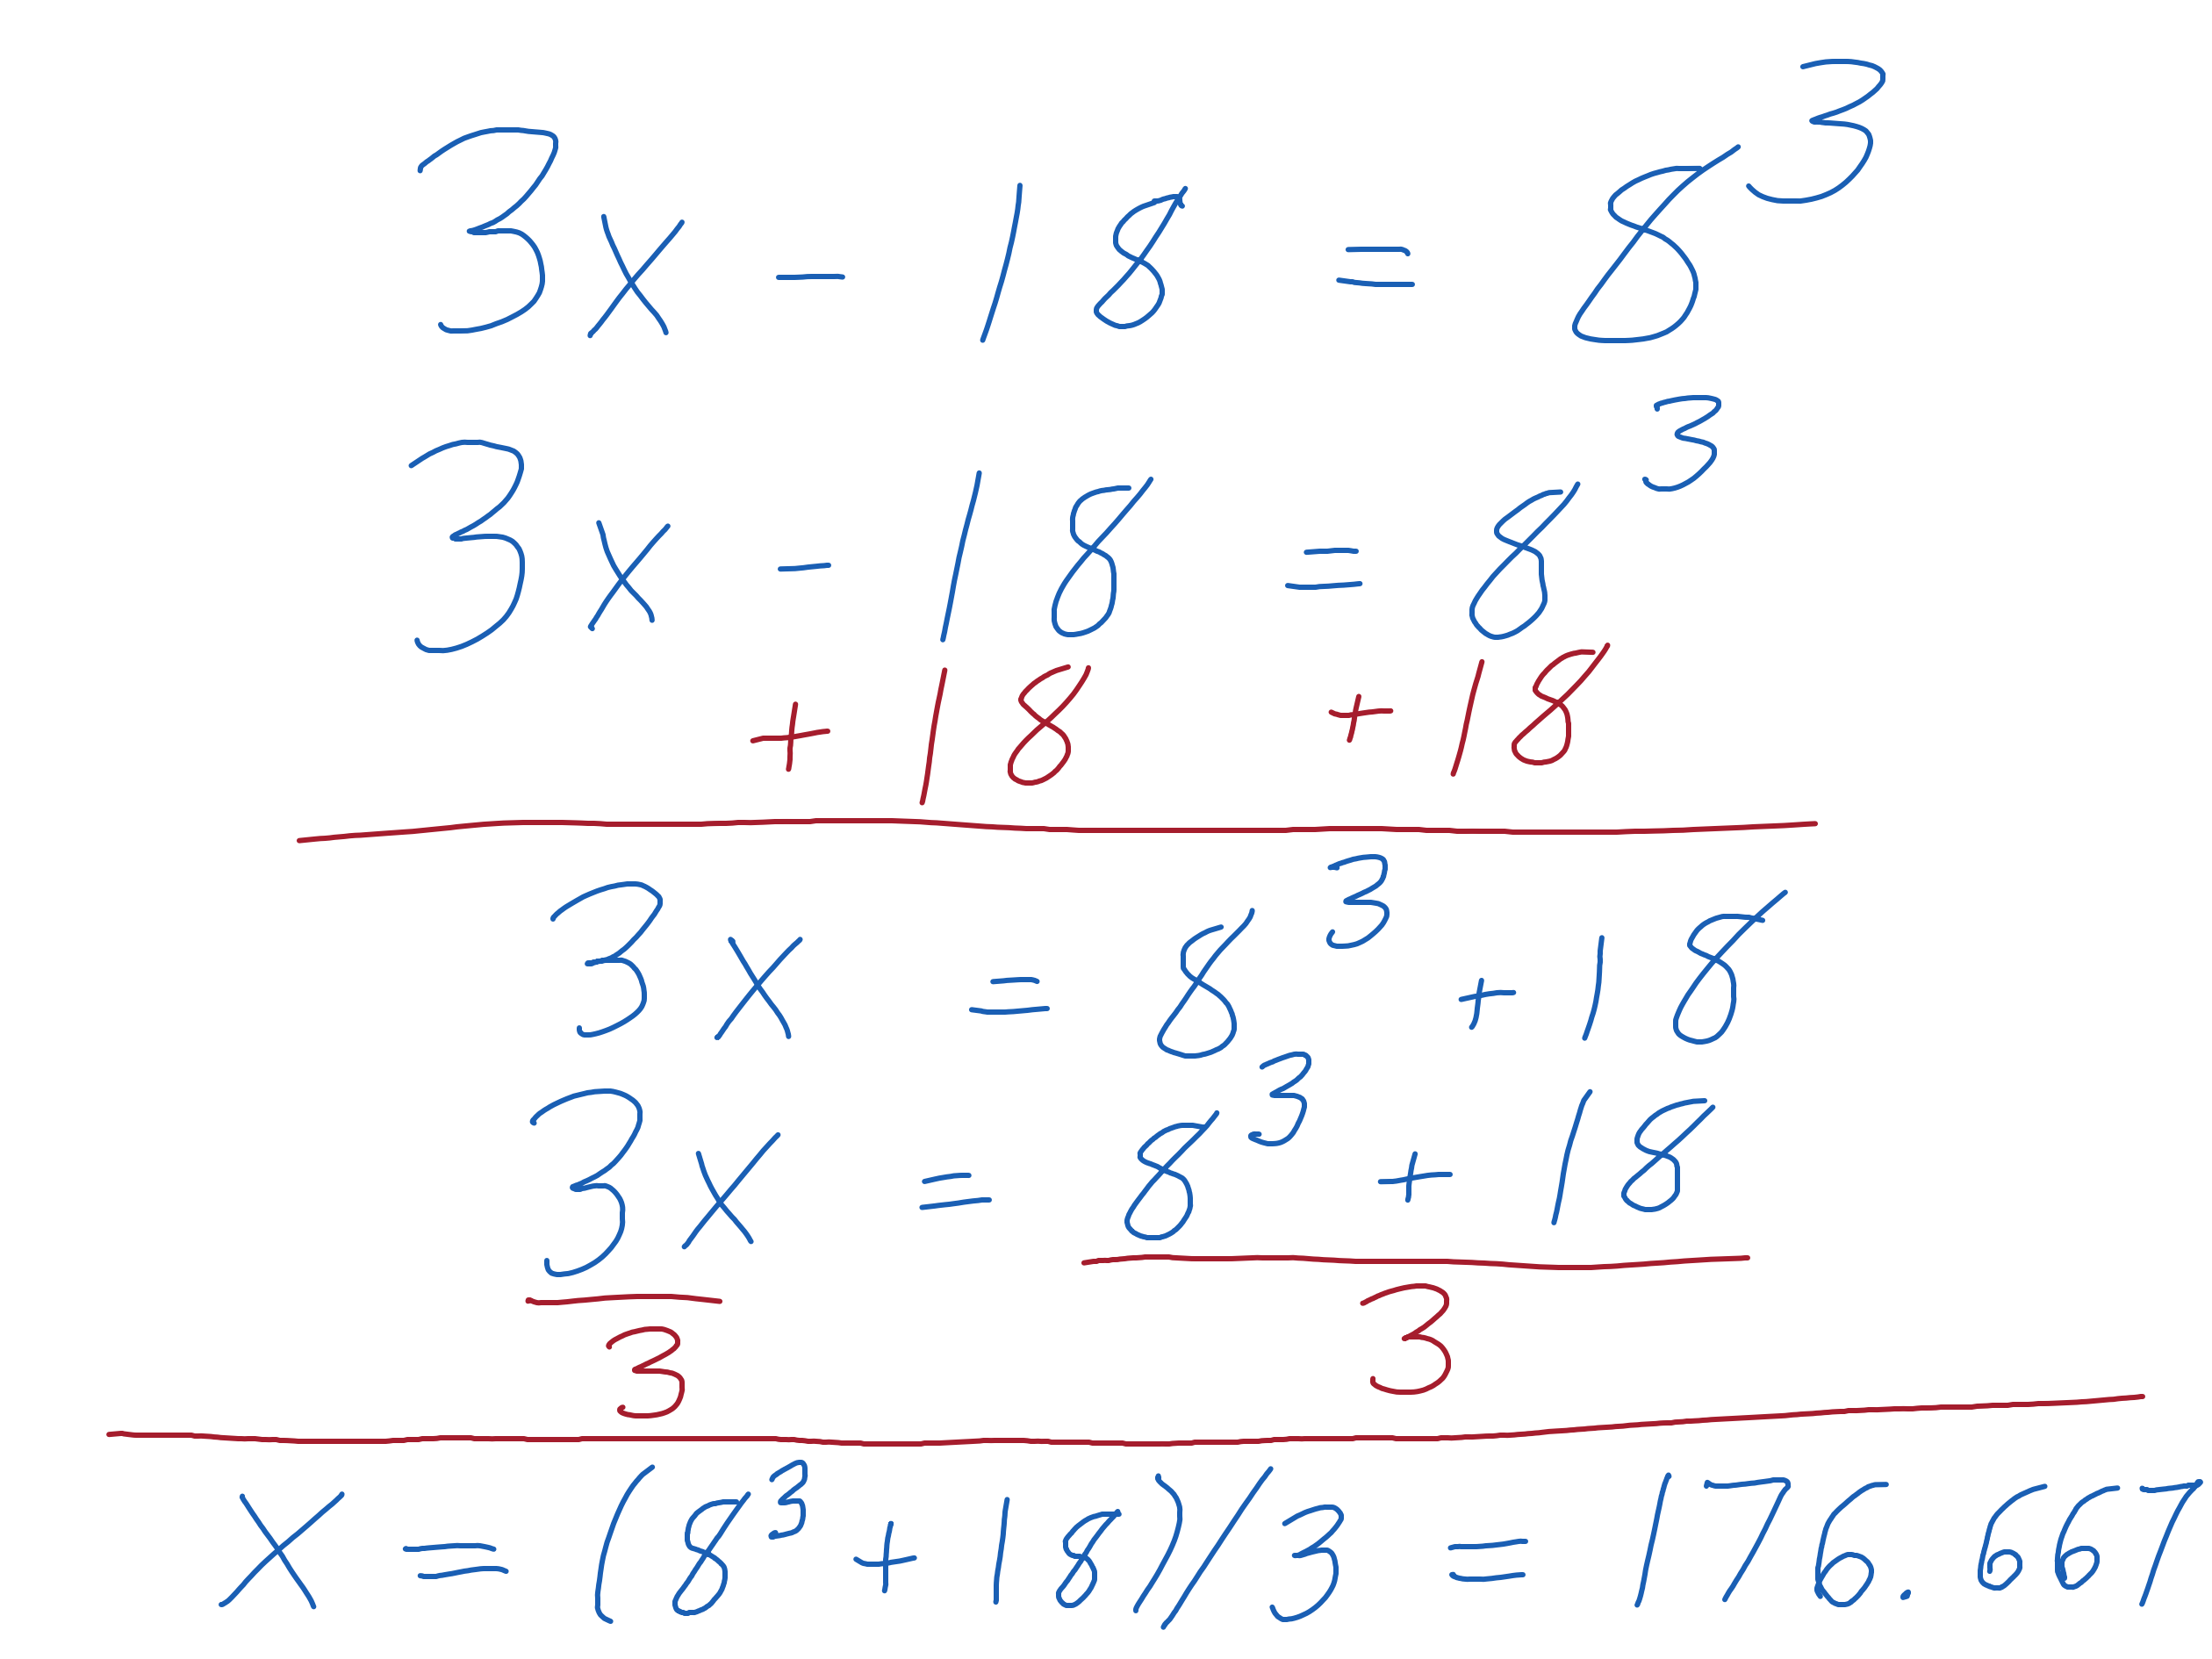 3x - 18 = 8³
3x - 18 = 8³
+ 18 + 18
3x = 8³ + 18
3x = 8³ + 18
3 3
x = (8³ + 18)/3 = 176.667